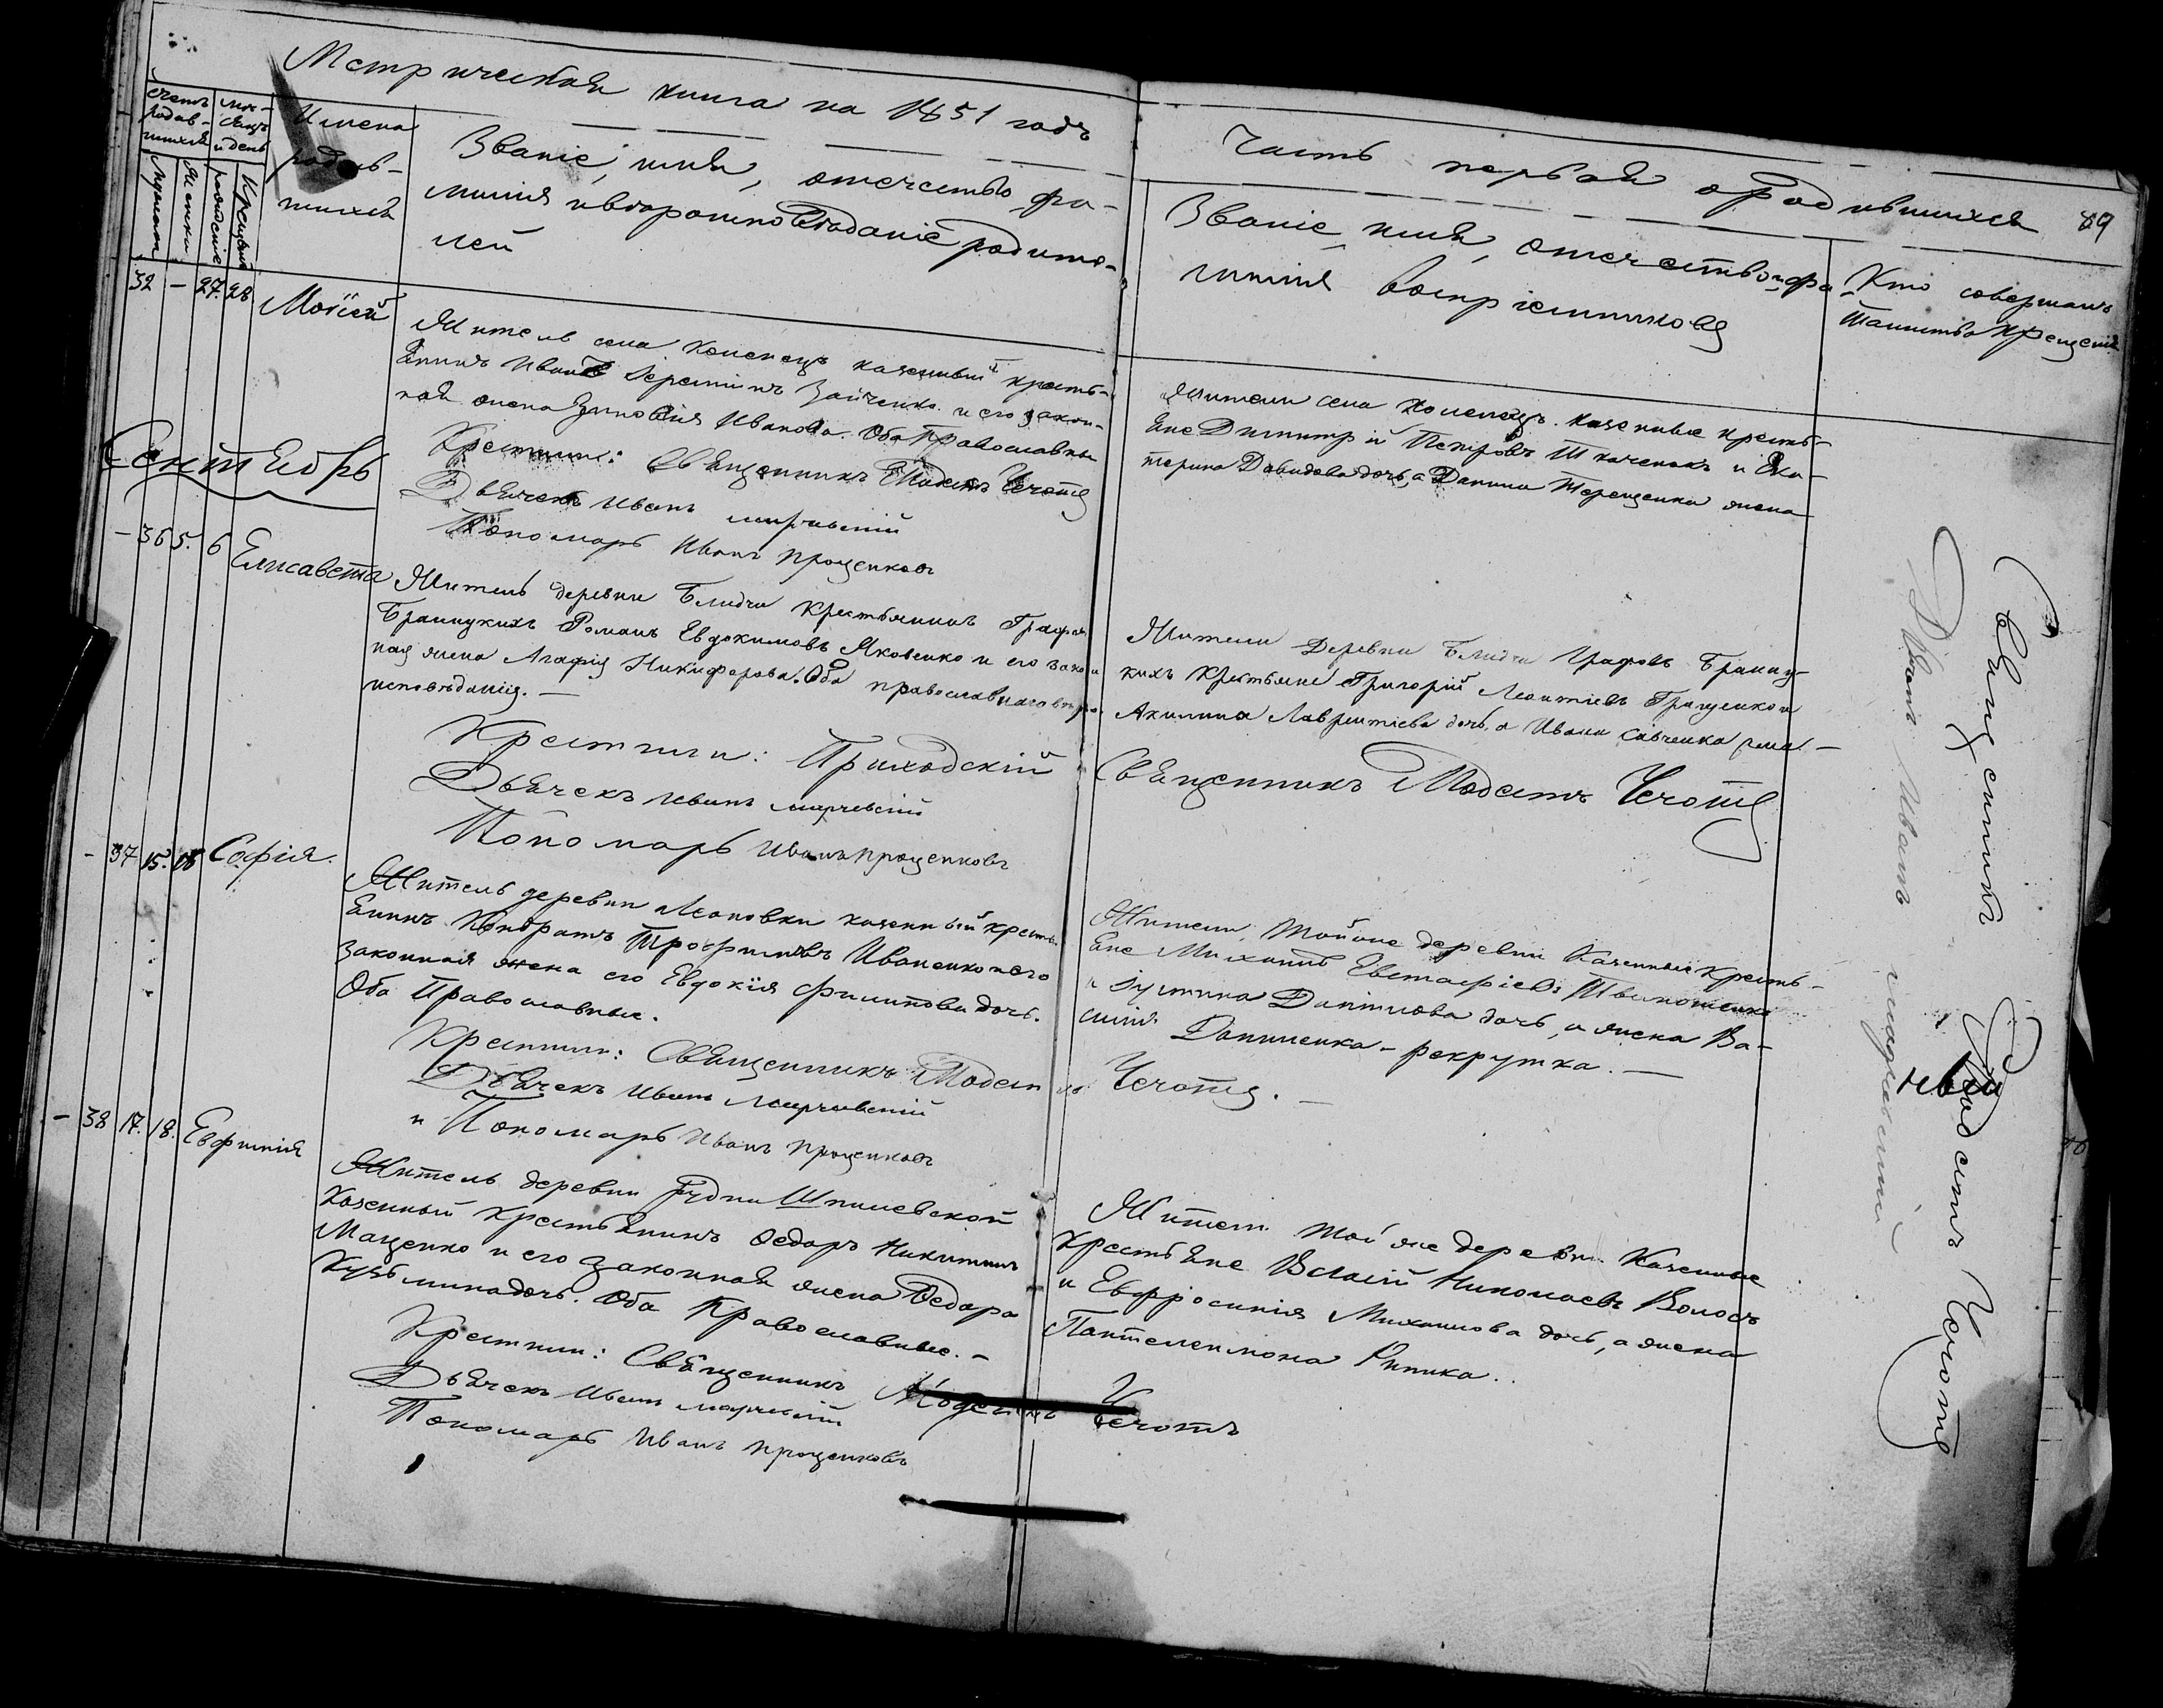 Метрическая книга на 1851 годъ
Часть первая о Родившихся 89
Счетъ родив-шихся
Мѣ-сяцъ и день
Имена родив-шихся
Званіе, имя, отечество, фа-
милія и вѣроисповѣданіе родите-
лей
Званіе, имя, отечество и фа-
милія воспріемниковъ
Кто совершалъ
таинство крещенія
Мужеска
Женска
рожденіе
Крещенія
32 - 27. 28 Моѵсей
Житель села казенный кресть-
янинъ Иванъ Зайченко и его закон-
ная жена Зиновія Иванова. Оба Православны
Крестили: Священникъ Модестъ Чечотъ
Дьячекъ Иванъ
Пономарь Иванъ Проценковъ
Жители села казенные кресть-
яне Димитрій Петровъ Ткаченокъ и Ека-
терина Давидова дочь, а Данила Терещенка жена
Сентябрь
- 36 5. 6 Елисавета
Житель деревни Блидчи Крестьянинъ Графовъ
Браницкихъ Романъ Евдокимовъ Яковенко и его закон
ная жена Агафія Никифорова. Оба православнаго вѣро-
исповѣданія. —
Крестили: Приходскій
Священникъ Модестъ Чечотъ
Дьячекъ Иванъ
Пономарь Иванъ Проценковъ
Жители Деревни Блидчи Графовъ Браниц-
кихъ Крестьяне Григорій Леонтіевъ Грищенко и
Акилина Лаврентіева дочь, а Ивана Савченка жена. —
- 37 15. 18 Софія.
Житель деревни Леоновки казенный кресть-
янинъ Кондратъ Трофимовъ Иваненко
законная жена его Евдокія Филиппова дочь.
Оба Православные.
Крестили: Священникъ Модестъ Чечотъ. —
Дьячекъ Иванъ
и Пономарь Иванъ Проценковъ
Жители той же деревни Казенные Кресть-
яне Михаилъ Евстафіевъ
и Іустина Даніилова дочь, а жена Ва-
силія Даниленка - рекрутка. —
- 38 17. 18. Евфимія
Житель деревни Рудни Шпилевской
Казенный крестьянинъ Ѳедоръ Никитинъ
Маценко и его законная жена Ѳедора
Кузьмина дочь. Оба Православные. —
Крестили: Священникъ Модестъ Чечотъ
Дьячекъ Иванъ
Пономарь Иванъ Проценковъ
Жители той же деревни Казенные
крестьяне Власій Николаевъ Волосъ
и Евфросинія Михаилова дочь, а жена
Пантелеимона Рипика.
Священникъ Модестъ Чечотъ
Дьячекъ Иванъ